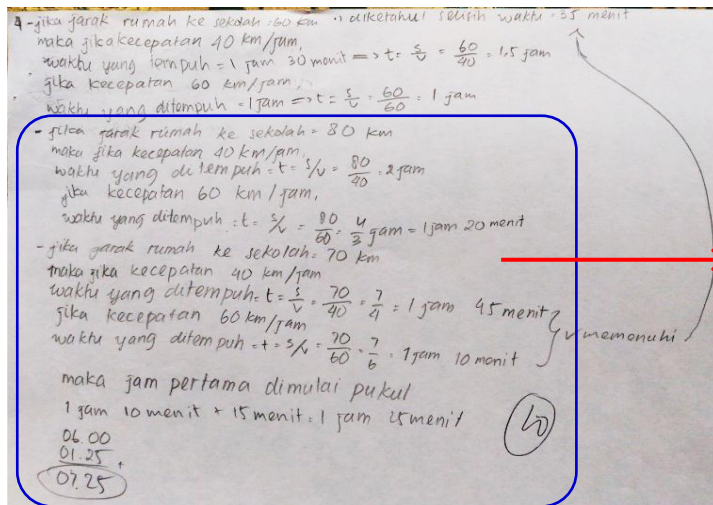 4 - jika jarak rumah ke sekolah = 60 km ∴ diketahui selisih waktu = 35 menit
maka jika kecepatan 40 km/jam,
waktu yang tempuh = 1 jam 30 menit => t = s/v = 60/40 = 1,5 jam
jika kecepatan 60 km/jam,
waktu yang ditempuh = 1 jam => t = s/v = 60/60 = 1 jam
- jika jarak rumah ke sekolah = 80 km
maka jika kecepatan 40 km/jam,
waktu yang di tempuh = t = s/v = 80/40 = 2 jam
jika kecepatan 60 km/jam,
waktu yang ditempuh = t = s/v = 80/60 = 4/3 jam = 1 jam 20 menit
- jika jarak rumah ke sekolah = 70 km
maka jika kecepatan 40 km/jam
waktu yang ditempuh = t = s/v = 70/40 = 7/4 = 1 jam 45 menit
jika kecepatan 60 km/jam
waktu yang ditempuh = t = s/v = 70/60 = 7/6 = 1 jam 10 menit
memenuhi
maka jam pertama dimulai pukul
1 jam 10 menit + 15 menit = 1 jam 25 menit
06.00
01.25 +
07.25